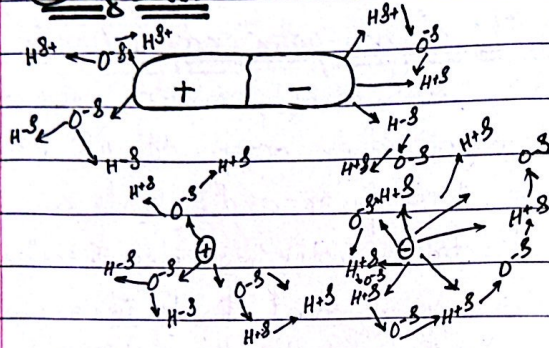 Hδ+ Hδ+ Hδ+
O-δ O-δ
+ − H+δ
O-δ H-δ
H-δ H-δ H+δ H+δ O-δ H+δ O-δ
H+δ O-δ O-δ H+δ H+δ
+ −
H-δ O-δ O-δ H+δ O-δ O-δ
H-δ H+δ H+δ H+δ O-δ H+δ